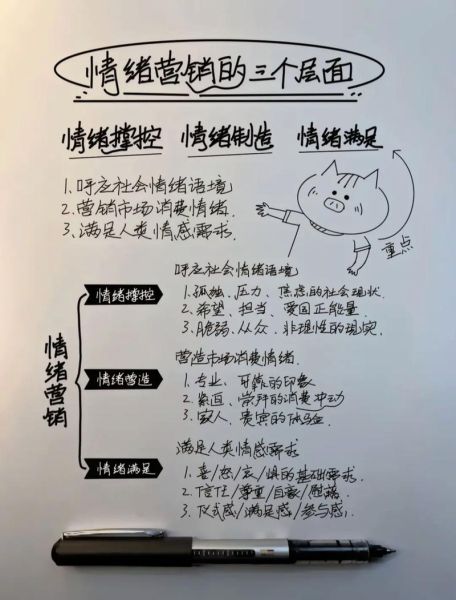 情绪营销的三个层面
情绪撑控 情绪制造 情绪满足
1.呼应社会情绪语境
2.营销市场消费情绪.
3.满足人类情感需求.
重点
情绪营销
情绪撑控
呼应社会情绪语境
1.孤独、压力、焦虑的社会现状.
2.希望、担当、爱国正能量.
3.脆弱、从众、非理性的现实.
情绪营造
营造市场消费情绪.
1.专业、可靠的印象
2.紧迫、崇拜的消费冲动
3.家人、贵宾的体验.
情绪满足
满足人类情感需求
1.喜/怒/哀/惧的基础需求.
2.信任/尊重/自豪/慰藉.
3.仪式感/满足感/参与感.